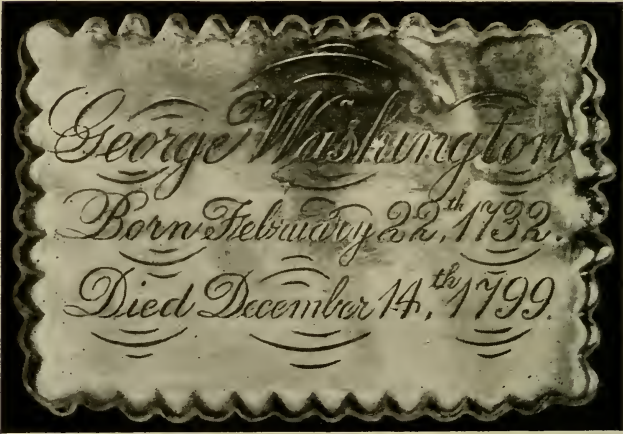 George Washington
Born February 22,th 1732.
Died December 14,th 1799.